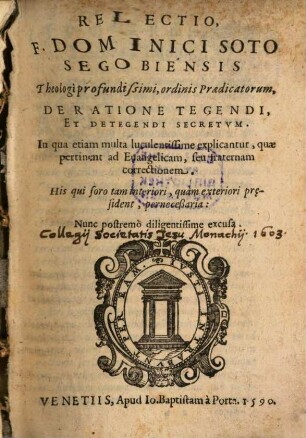 RELECTIO,
F. DOMINICI SOTO
SEGOBIENSIS
Theologi profundissimi, ordinis Prædicatorum,
DE RATIONE TEGENDI,
ET DETEGENDI SECRETVM.
In qua etiam multa luculentissime explicantur, quæ
pertinent ad Euangelicam, seu fraternam
correctionem.
His qui foro tam interiori, quàm exteriori præ-
sident, pernecessaria:
Nunc postremò diligentissime excusa.
Collegij Societatis Jesu Monachij 1603.
VENETIIS, Apud Io. Baptistam à Porta. 1590.